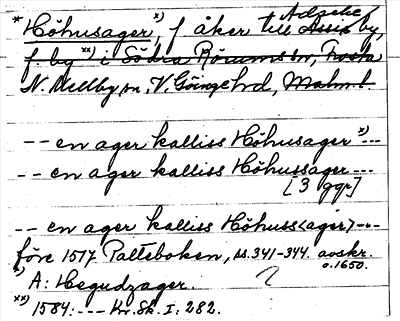 Adzebo
* Höhusager, x) f åker till Assie by,
f. by xx) i Södra Rörums sn, Frosta
N. Mellby sn, V. Göinge hd, Malm. l.
-- en ager kalliss Höhusager x) ---
-- en ager kalliss Höhussager ---
[3 ggr]
-- en ager kalliss Höhuss<ager> ---
före 1517 Palteboken, ss. 341-344. avskr.
c. 1650.
x) A: Hegudzager. ?
xx) 1584: --- Kr. Sk. I: 282.